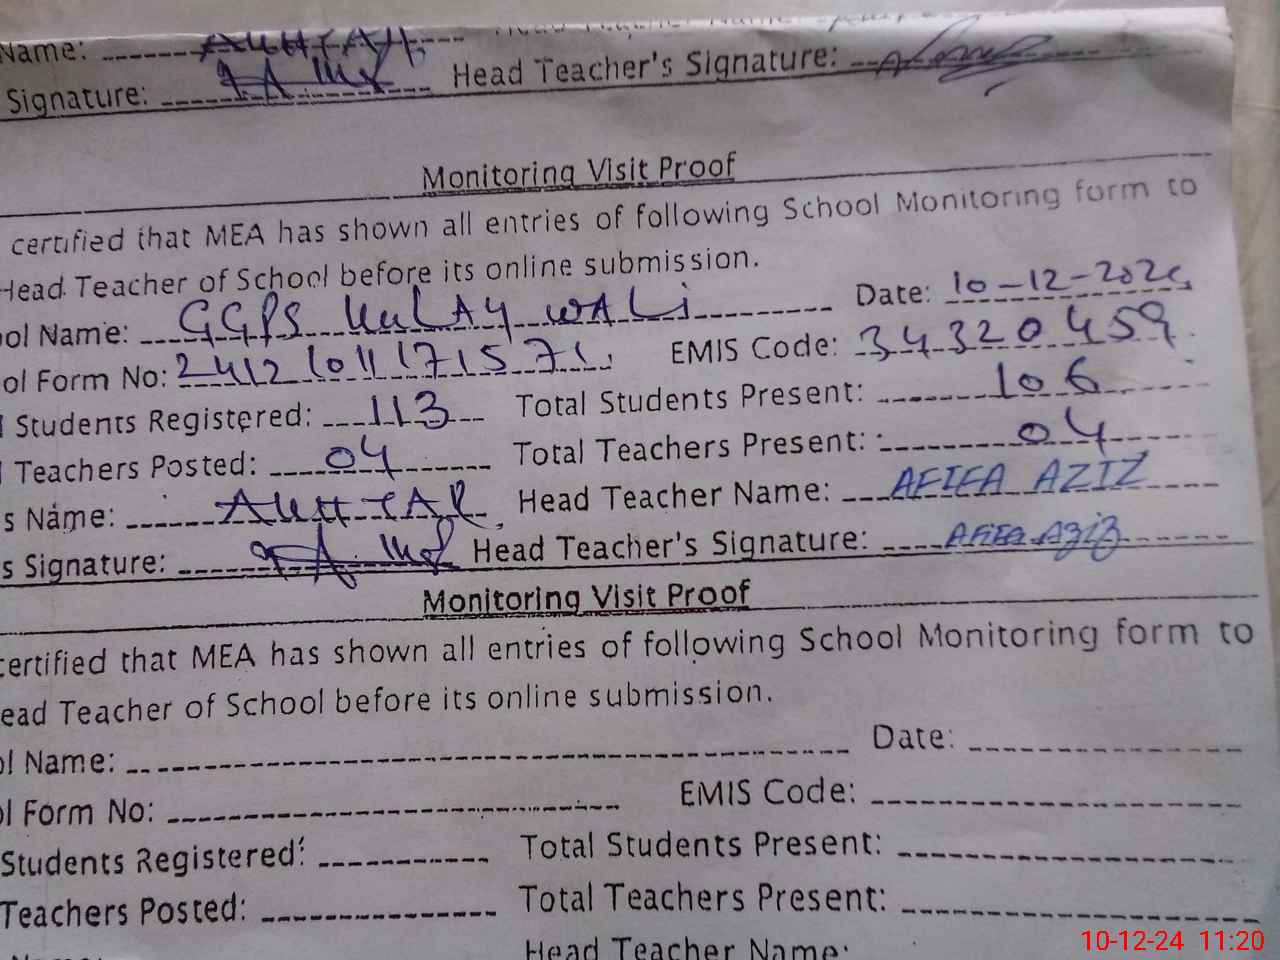 Name: AKHTAR
Signature: Head Teacher's Signature:
Monitoring Visit Proof
certified that MEA has shown all entries of following School Monitoring form to
Head Teacher of School before its online submission.
ol Name: GGPS KULAY WALI Date: 10-12-2024
ol Form No: EMIS Code: 34320459
Students Registered: 113 Total Students Present: 106
Teachers Posted: 04 Total Teachers Present: 04
s Name: AKHTAR Head Teacher Name: AFIFA AZIZ
s Signature: Head Teacher's Signature: Afifa Aziz
Monitoring Visit Proof
certified that MEA has shown all entries of following School Monitoring form to
ead Teacher of School before its online submission.
ol Name: Date:
l Form No: EMIS Code:
Students Registered: Total Students Present:
Teachers Posted: Total Teachers Present:
Head Teacher Name:
10-12-24 11:20